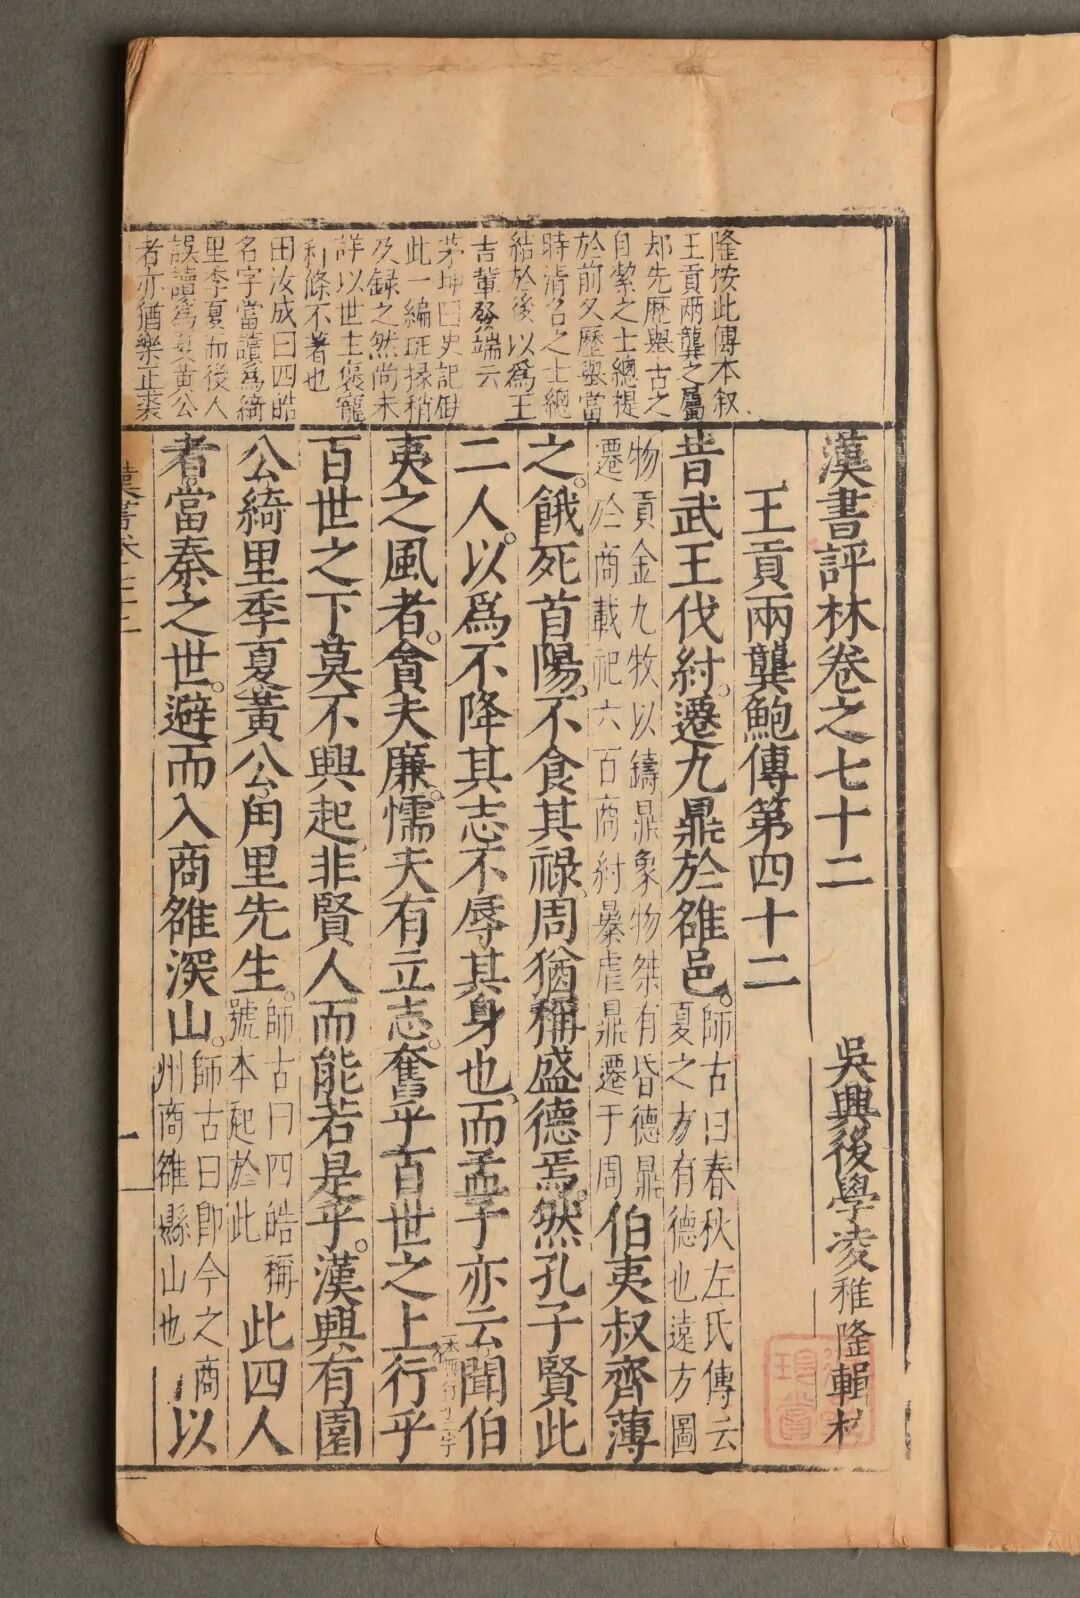 隆按此傳本叙
王貢兩龔之屬
却先歷舉古之
自潔之士總提
於前又歷舉當
時清名之士總
結於後以爲王
吉輩發端云
茅坤曰史記倣
此一編班掾稍
及錄之然尚未
詳以世主褒寵
利條不著也
田汝成曰四皓
名字當讀爲綺
里季夏而後人
誤讀爲夏黃公
者亦猶樂正裘
漢書評林卷之七十二
吳興後學凌稚隆輯校
王貢兩龔鮑傳第四十二
昔武王伐紂遷九鼎於雒邑師古曰春秋左氏傳云夏之方有德也遠方圖
物貢金九牧以鑄鼎象物桀有昏德鼎遷於商載祀六百商紂暴虐鼎遷于周伯夷叔齊薄
之餓死首陽不食其祿周猶稱盛德焉然孔子賢此
二人以爲不降其志不辱其身也而孟子亦云聞伯
夷之風者貪夫廉懦夫有立志奮乎百世之上行乎
百世之下莫不興起非賢人而能若是乎漢興有園
公綺里季夏黃公甪里先生師古曰四皓稱號本起於此此四人
者當秦之世避而入商雒深山師古曰即今之商州商雒縣山也以